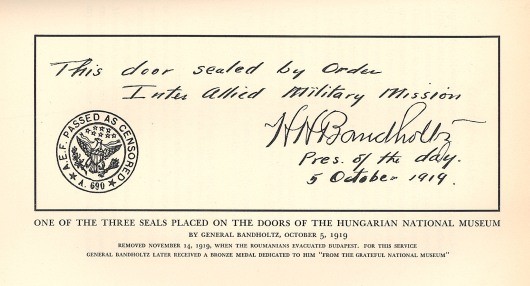 This door sealed by Order
Inter Allied Military Mission
HHBandholtz
Pres. of the day.
5 October 1919.
A.E.F. PASSED AS CENSORED
A. 690
ONE OF THE THREE SEALS PLACED ON THE DOORS OF THE HUNGARIAN NATIONAL MUSEUM
BY GENERAL BANDHOLTZ, OCTOBER 5, 1919
REMOVED NOVEMBER 14, 1919, WHEN THE ROUMANIANS EVACUATED BUDAPEST. FOR THIS SERVICE
GENERAL BANDHOLTZ LATER RECEIVED A BRONZE MEDAL DEDICATED TO HIM "FROM THE GRATEFUL NATIONAL MUSEUM"